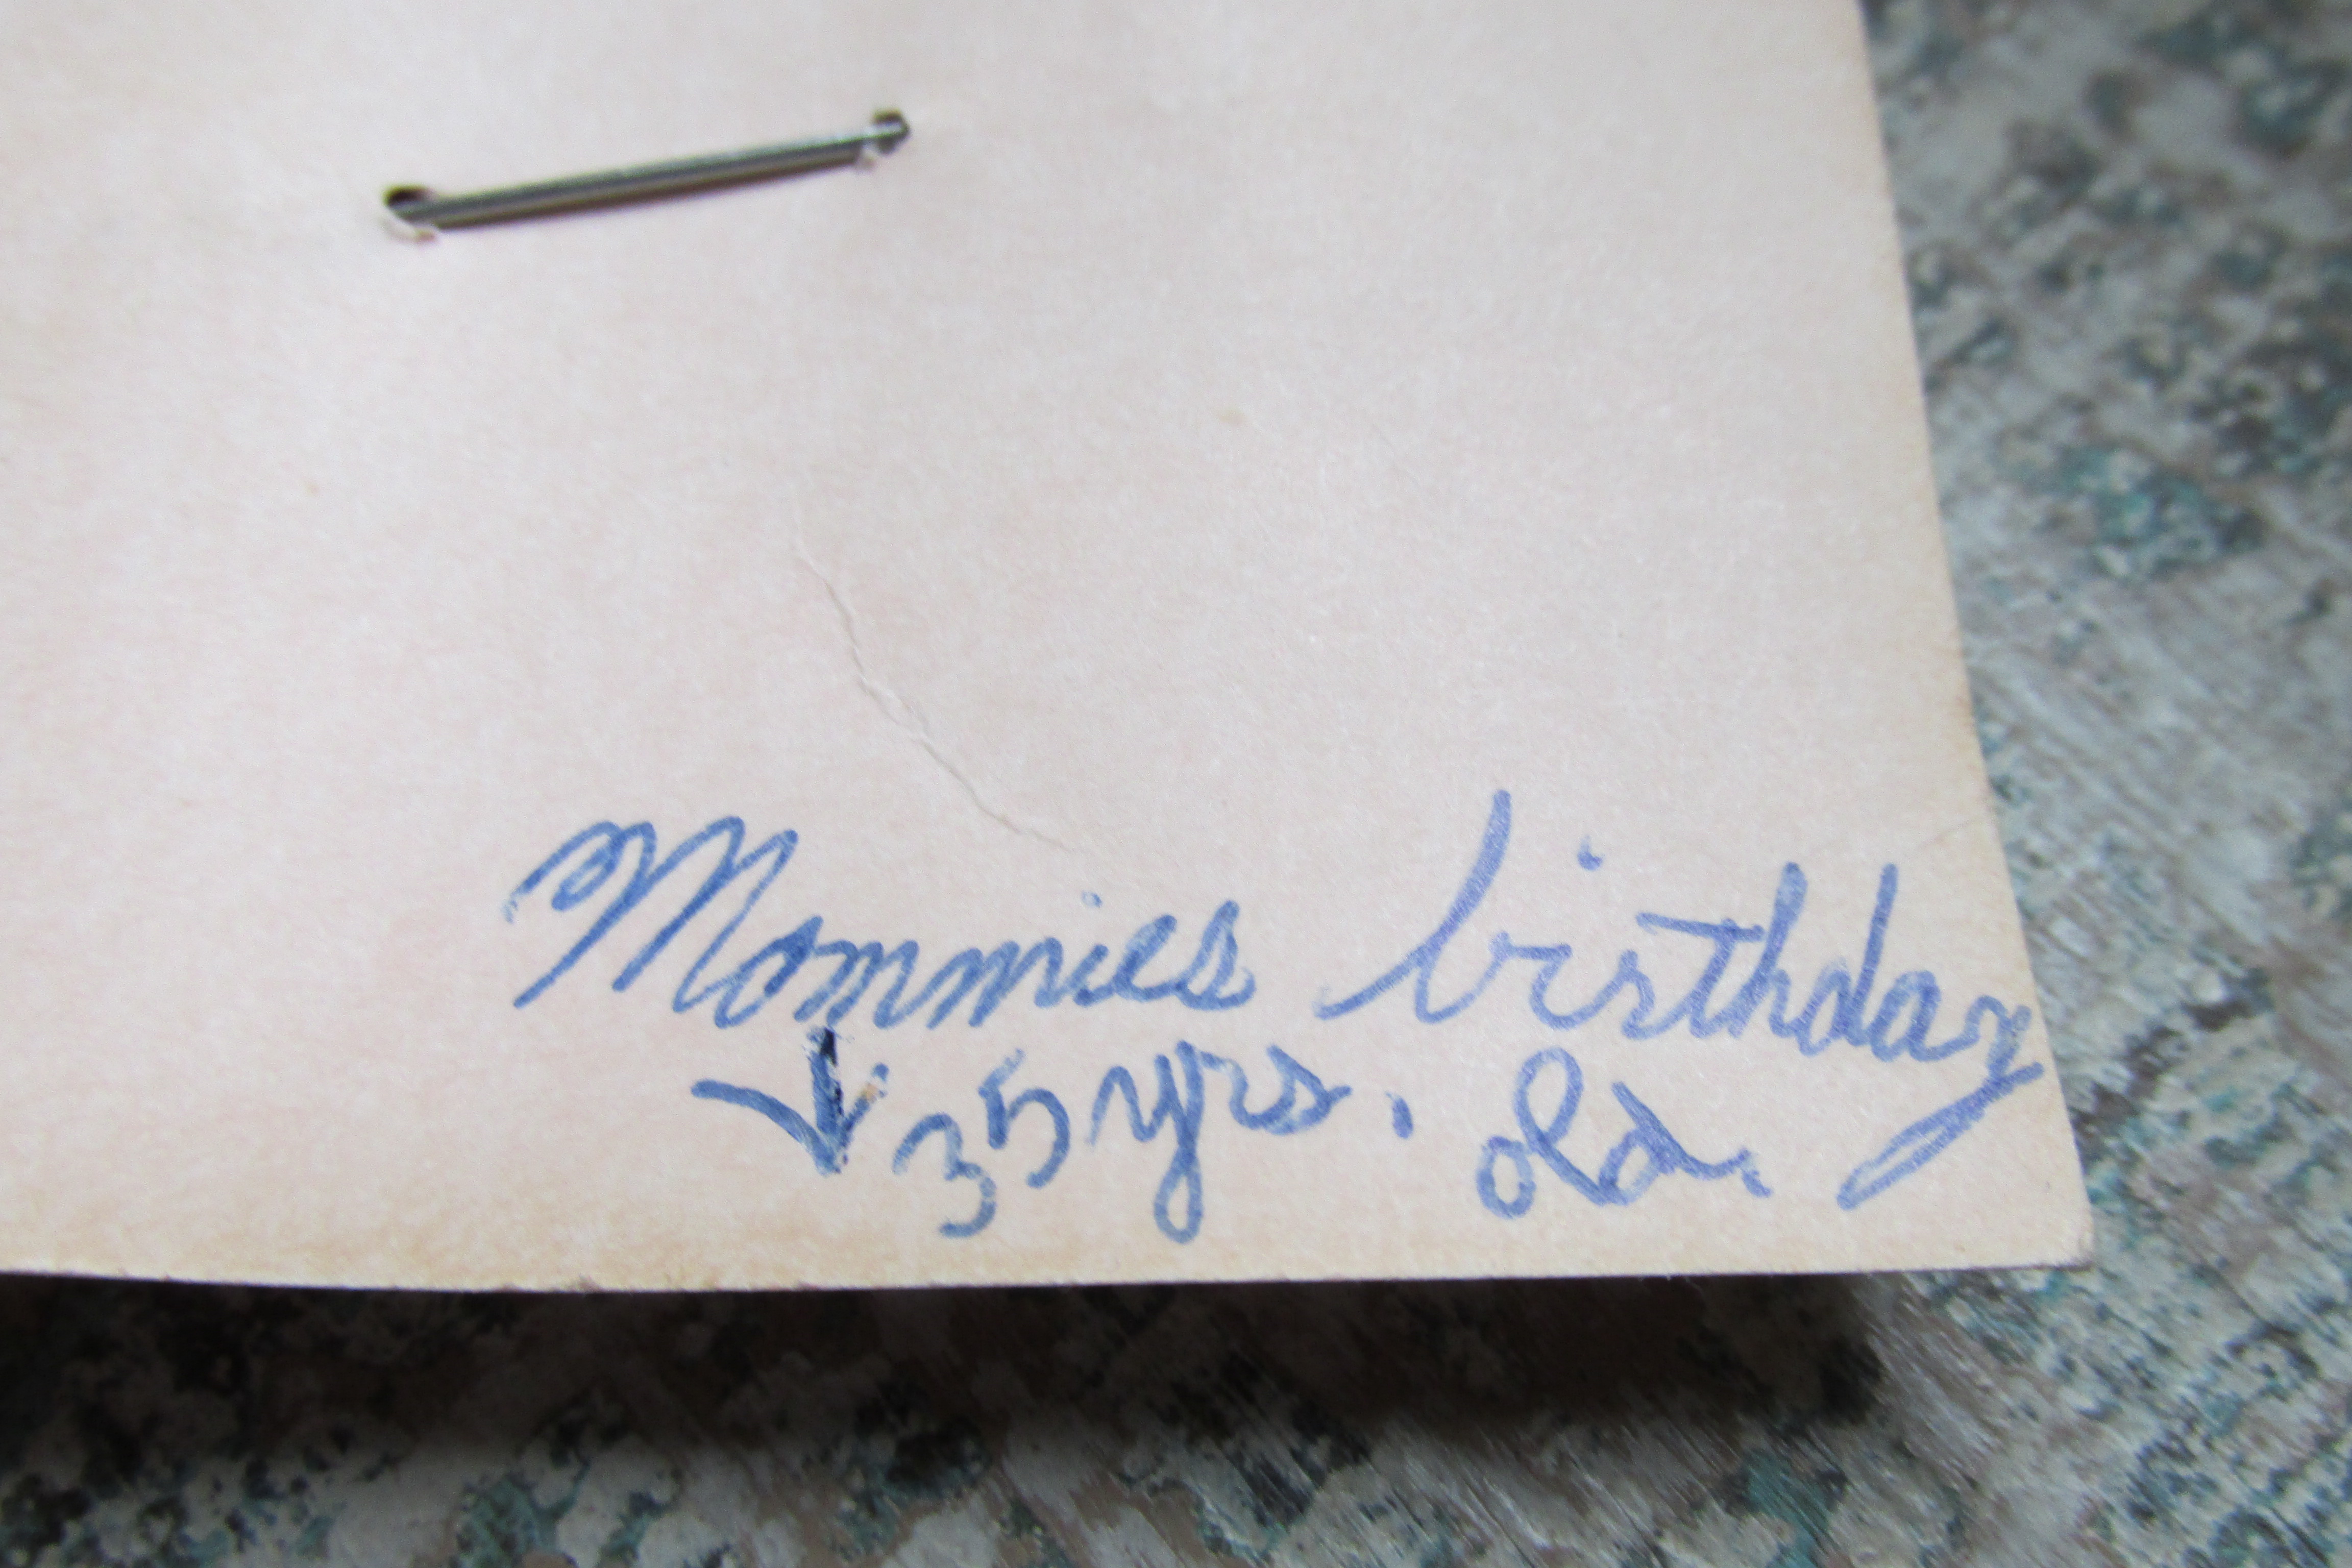 Mommies birthday
↓ 35 yrs. old.